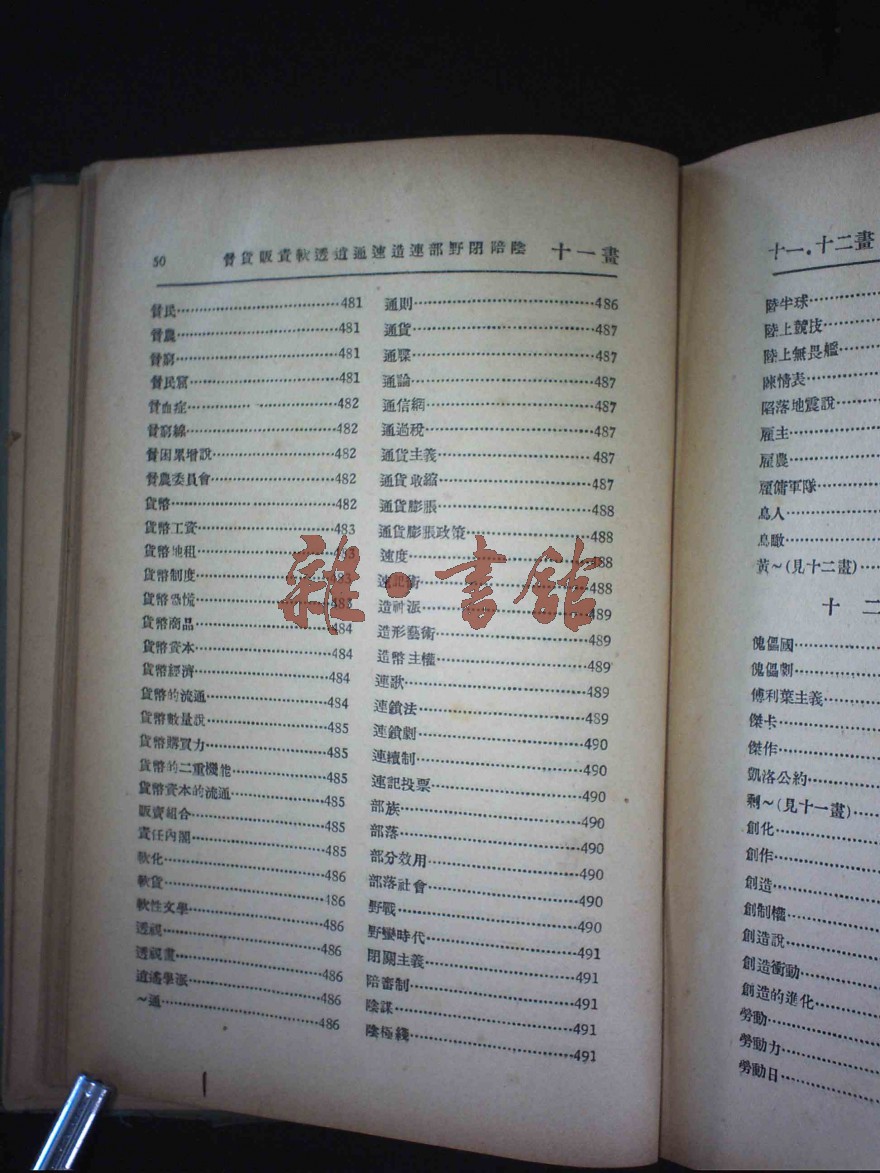 50 貧貨販責軟透逍通速造連部野閉陪陰 十一畫
貧民……481
貧農……481
貧窮……481
貧民窟……481
貧血症……482
貧窮線……482
貧困累增說……482
貧農委員會……482
貨幣……482
貨幣工資……483
貨幣地租……483
貨幣制度……483
貨幣恐慌……483
貨幣商品……484
貨幣資本……484
貨幣經濟……484
貨幣的流通……484
貨幣數量說……485
貨幣購買力……485
貨幣的二重機能……485
貨幣資本的流通……485
販賣組合……485
責任內閣……485
軟化……486
軟貨……486
軟性文學……486
透視……486
透視畫……486
逍遙學派……486
~通……486
通則……486
通貨……487
通牒……487
通論……487
通信網……487
通過稅……487
通貨主義……487
通貨收縮……487
通貨膨脹……488
通貨膨脹政策……488
速度……488
速記術……488
造神派……489
造形藝術……489
造幣主權……489
連歌……489
連鎖法……489
連鎖劇……490
連續制……490
連記投票……490
部族……490
部落……490
部分效用……490
部落社會……490
野戰……490
野蠻時代……491
閉關主義……491
陪審制……491
陰謀……491
陰極綫……491
十一.十二畫
陸半球……
陸上競技……
陸上無畏艦……
陳情表……
陷落地震說……
雇主……
雇農……
雇傭軍隊……
鳥人……
鳥瞰……
黃~(見十二畫)……
十 二
傀儡國……
傀儡劇……
傅利葉主義……
傑卡……
傑作……
凱洛公約……
剩~(見十一畫)……
創化……
創作……
創造……
創制權……
創造說……
創造衝動……
創造的進化……
勞動……
勞動力……
勞動日……
雜·書館